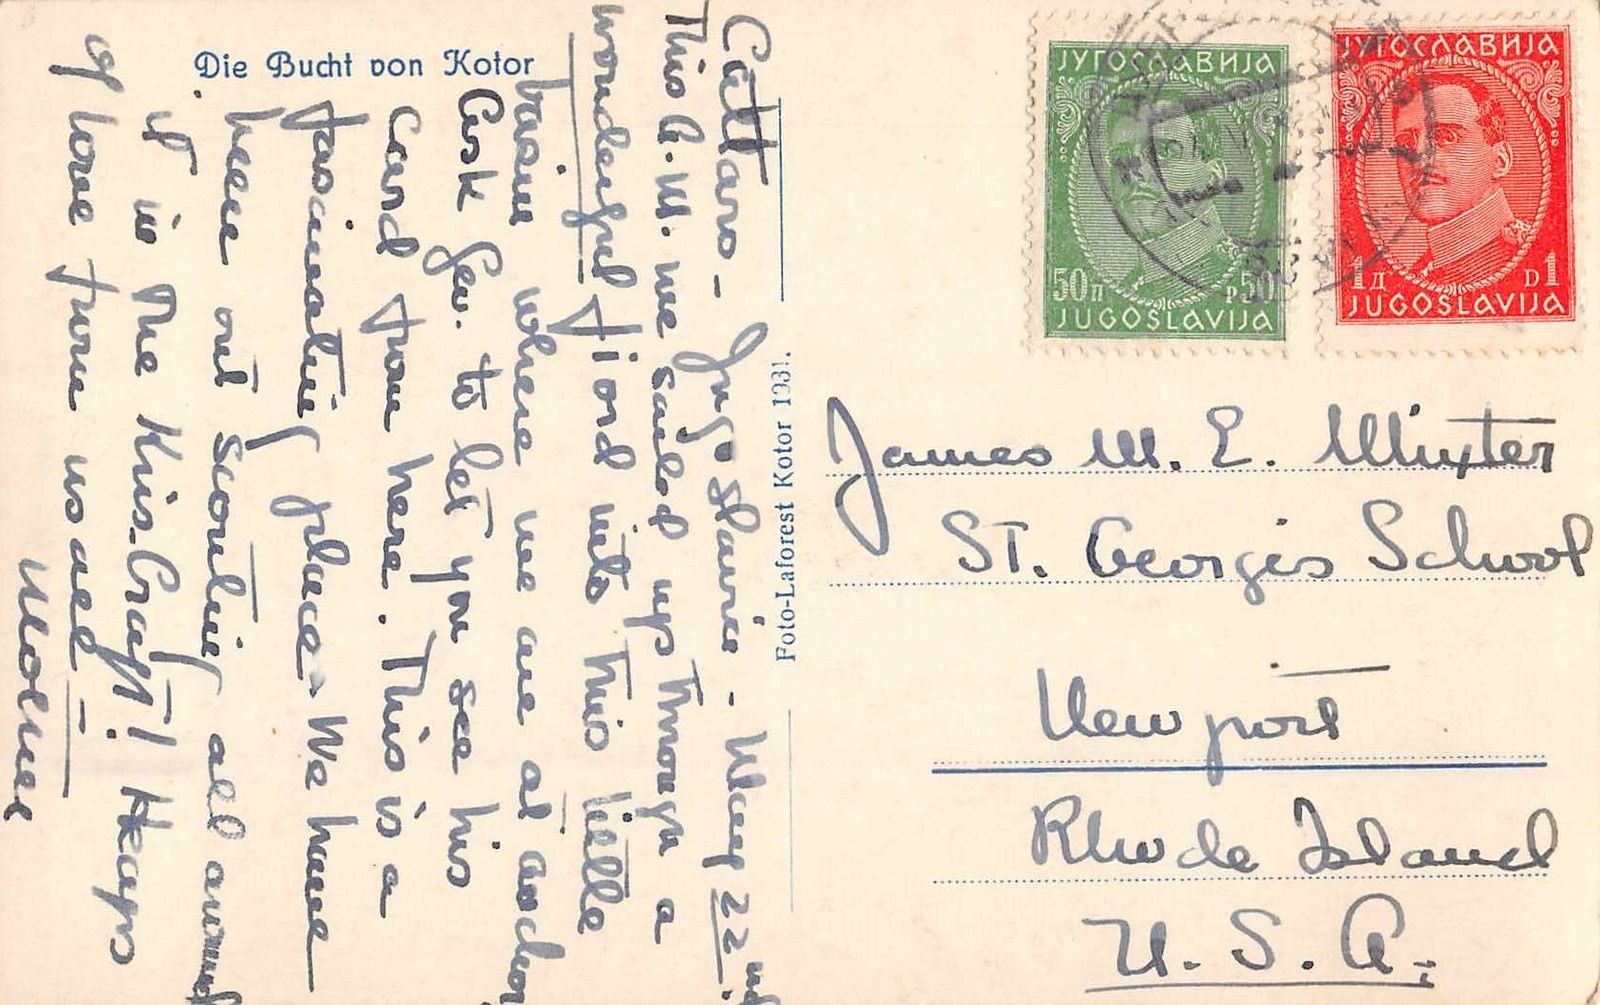 Die Bucht von Kotor
Cattaro - Jugo slavia - May 22nd
This A.M. we sailed up through a
wonderful fiord into this little
basin where we are at anchor
Ask Geo. to let you see his
card from here. This is a
fascinating place - We have
been out scouting all around
it in the Kris-Craft! Heaps
of love from us all -
Mother
Foto-Laforest Kotor 1931.
ЈУГОСЛАВИЈА
50п Р50
JUGOSLAVIJA
ЈУГОСЛАВИЈА
1Д D1
JUGOSLAVIJA
James M. E. Mixter
St. Georges School
Newport
Rhode Island
U. S. A.